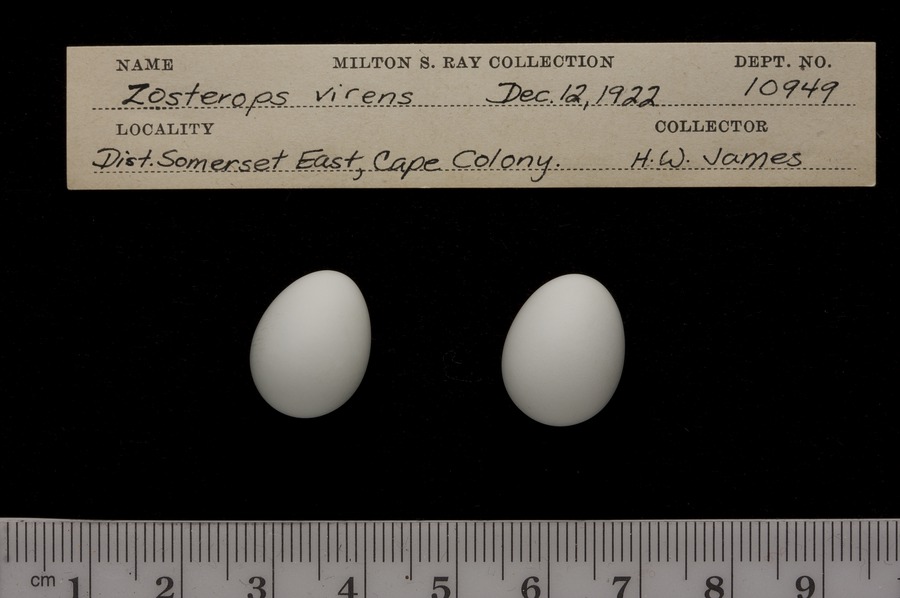 NAME MILTON S. RAY COLLECTION DEPT. NO.
Zosterops virens Dec. 12, 1922 10949
LOCALITY COLLECTOR
Dist. Somerset East, Cape Colony. H. W. James
cm 1 2 3 4 5 6 7 8 9